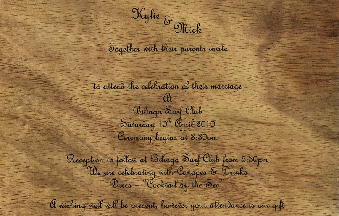 Kylie
&
Mick
Together with their parents invite
to attend the celebration of their marriage
At
Surf Club
Saturday April
Ceremony begins at
Reception to follow at Surf Club from
We are celebrating with Canapes & Drinks
Dress - Cocktail by the Sea
A wishing well will be present, however, your attendance is our gift